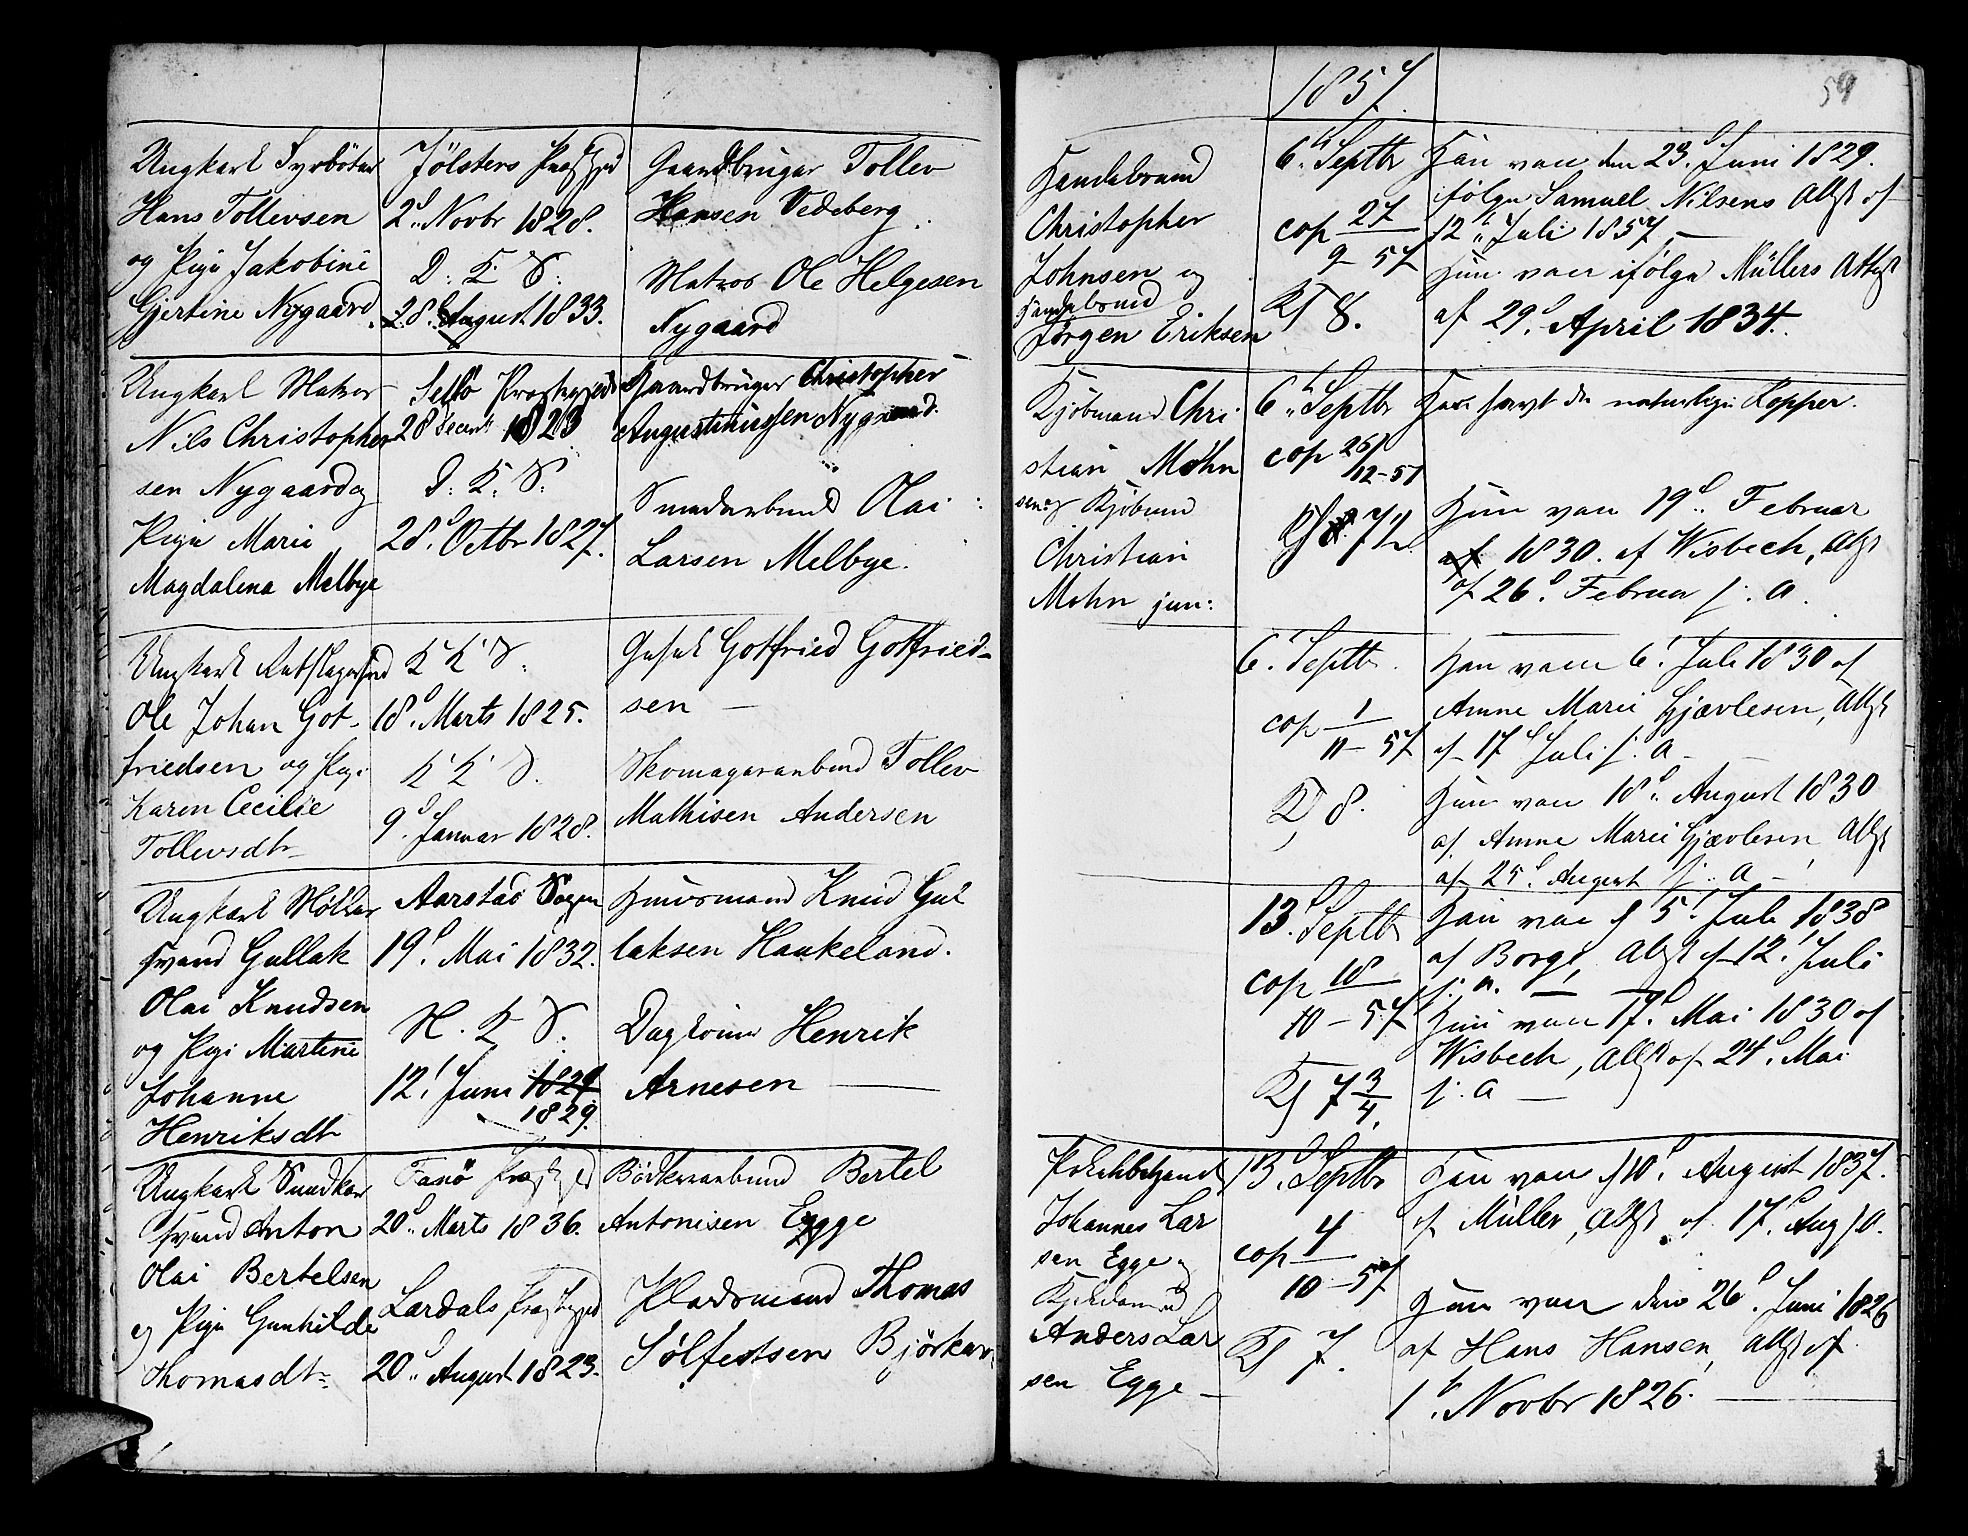 1857
59
Ungkarl Fyrböter
Hans Tollevsen
og Pige Jakobine
Gjertine Nygaard
Jölsters
2d Novbr 1828.
D: K. S:
28d August 1833.
Gaardbruger Tollev
Hansen Vedeberg.
Matros Ole Helgesen
Nygaard
Handelsmand
Christopher
Johnsen og
Handelsmand
Jørgen Eriksen
6. Septbr
cop 27
9-57
8.
Han vacc den 23d Juni 1829.
ifølge Samuel Nilsens Attst af
12 Juli 1857. —
Hun vacc ifölge Müllers Attest
af 29d April 1834.
Ungkarl Matros
Nils Christopher
sen Nygaard og
Pige Marie
Magdalena Melbye
28 Decemb 1823
D: K. S:
28d Octbr 1827.
Gaardbruger Christopher
Augustinussen Nygaard.
Olai
Larsen Melbye.
Kjöbmand Chri
stian Mohn
sen og Kjöbmd
Christian
Mohn jun:
6 Septbr
cop 26
12-57
Han havt de naturlige Kopper.
Hun vacc 19d Februar
1830. af Wisbech, Attst
af 26d Februar s. A.
Ungkarl
Ole Johan Got-
friedsen og Pige
Karen Cecilie
Tollevsdtr
K K S.
18d Marts 1825.
K K S.
9d Januar 1828.
Gotfried Gotfried-
sen —
Skomagerarbeid Tollev
Mathisen Andersen
6. Septbr.
cop 1
11-57
8.
Han vacc 6. Juli 1830 af
Anne Marie Gjævlesen, Attst
af 17d Juli s. A —
Hun vacc 18d August 1830
af Anne Marie Gjævlesen Attst
af 25d August s. A —
Ungkarl Møller
svend Gullak
Olai Knudsen
og Pige Martine
Johanne
Henriksdtr
Aarstad Sogn
19d Mai 1832.
H. K S.
12. Juni 1829
1829.
Huusmand Knud Gul
laksen Haukeland.
Henrik
Arnesen —
13. Septbr
cop 18
10-57
7 3/4
Han vacc d 5. Juli 1838
af Borge, Attst af 12. Juli
s. A. — —
Hun vacc 17d Mai 1830 af
Wisbech, Attst af 24d Mai
s. A —
Ungkarl
svend Anton
Olai Bertelsen
og Pige Gunhilde
Thomasdtr
Fanö
20d Marts 1836.
Lærdals
20d August 1823.
Bödkerarbeid Bertel
Antonisen Egge
Pladsmand Thomas
Sölfestsen
Johannes Lar
sen Egge og
Anders Lar
sen Egge —
13. Septbr
cop 4
10-57
7.
Han vacc d 10d August 1837.
af Müller, Attst af 17d Aug s A.
Hun vacc den 26d Juni 1826
af Hans Hansen, Attst af
1. Novbr 1826. —